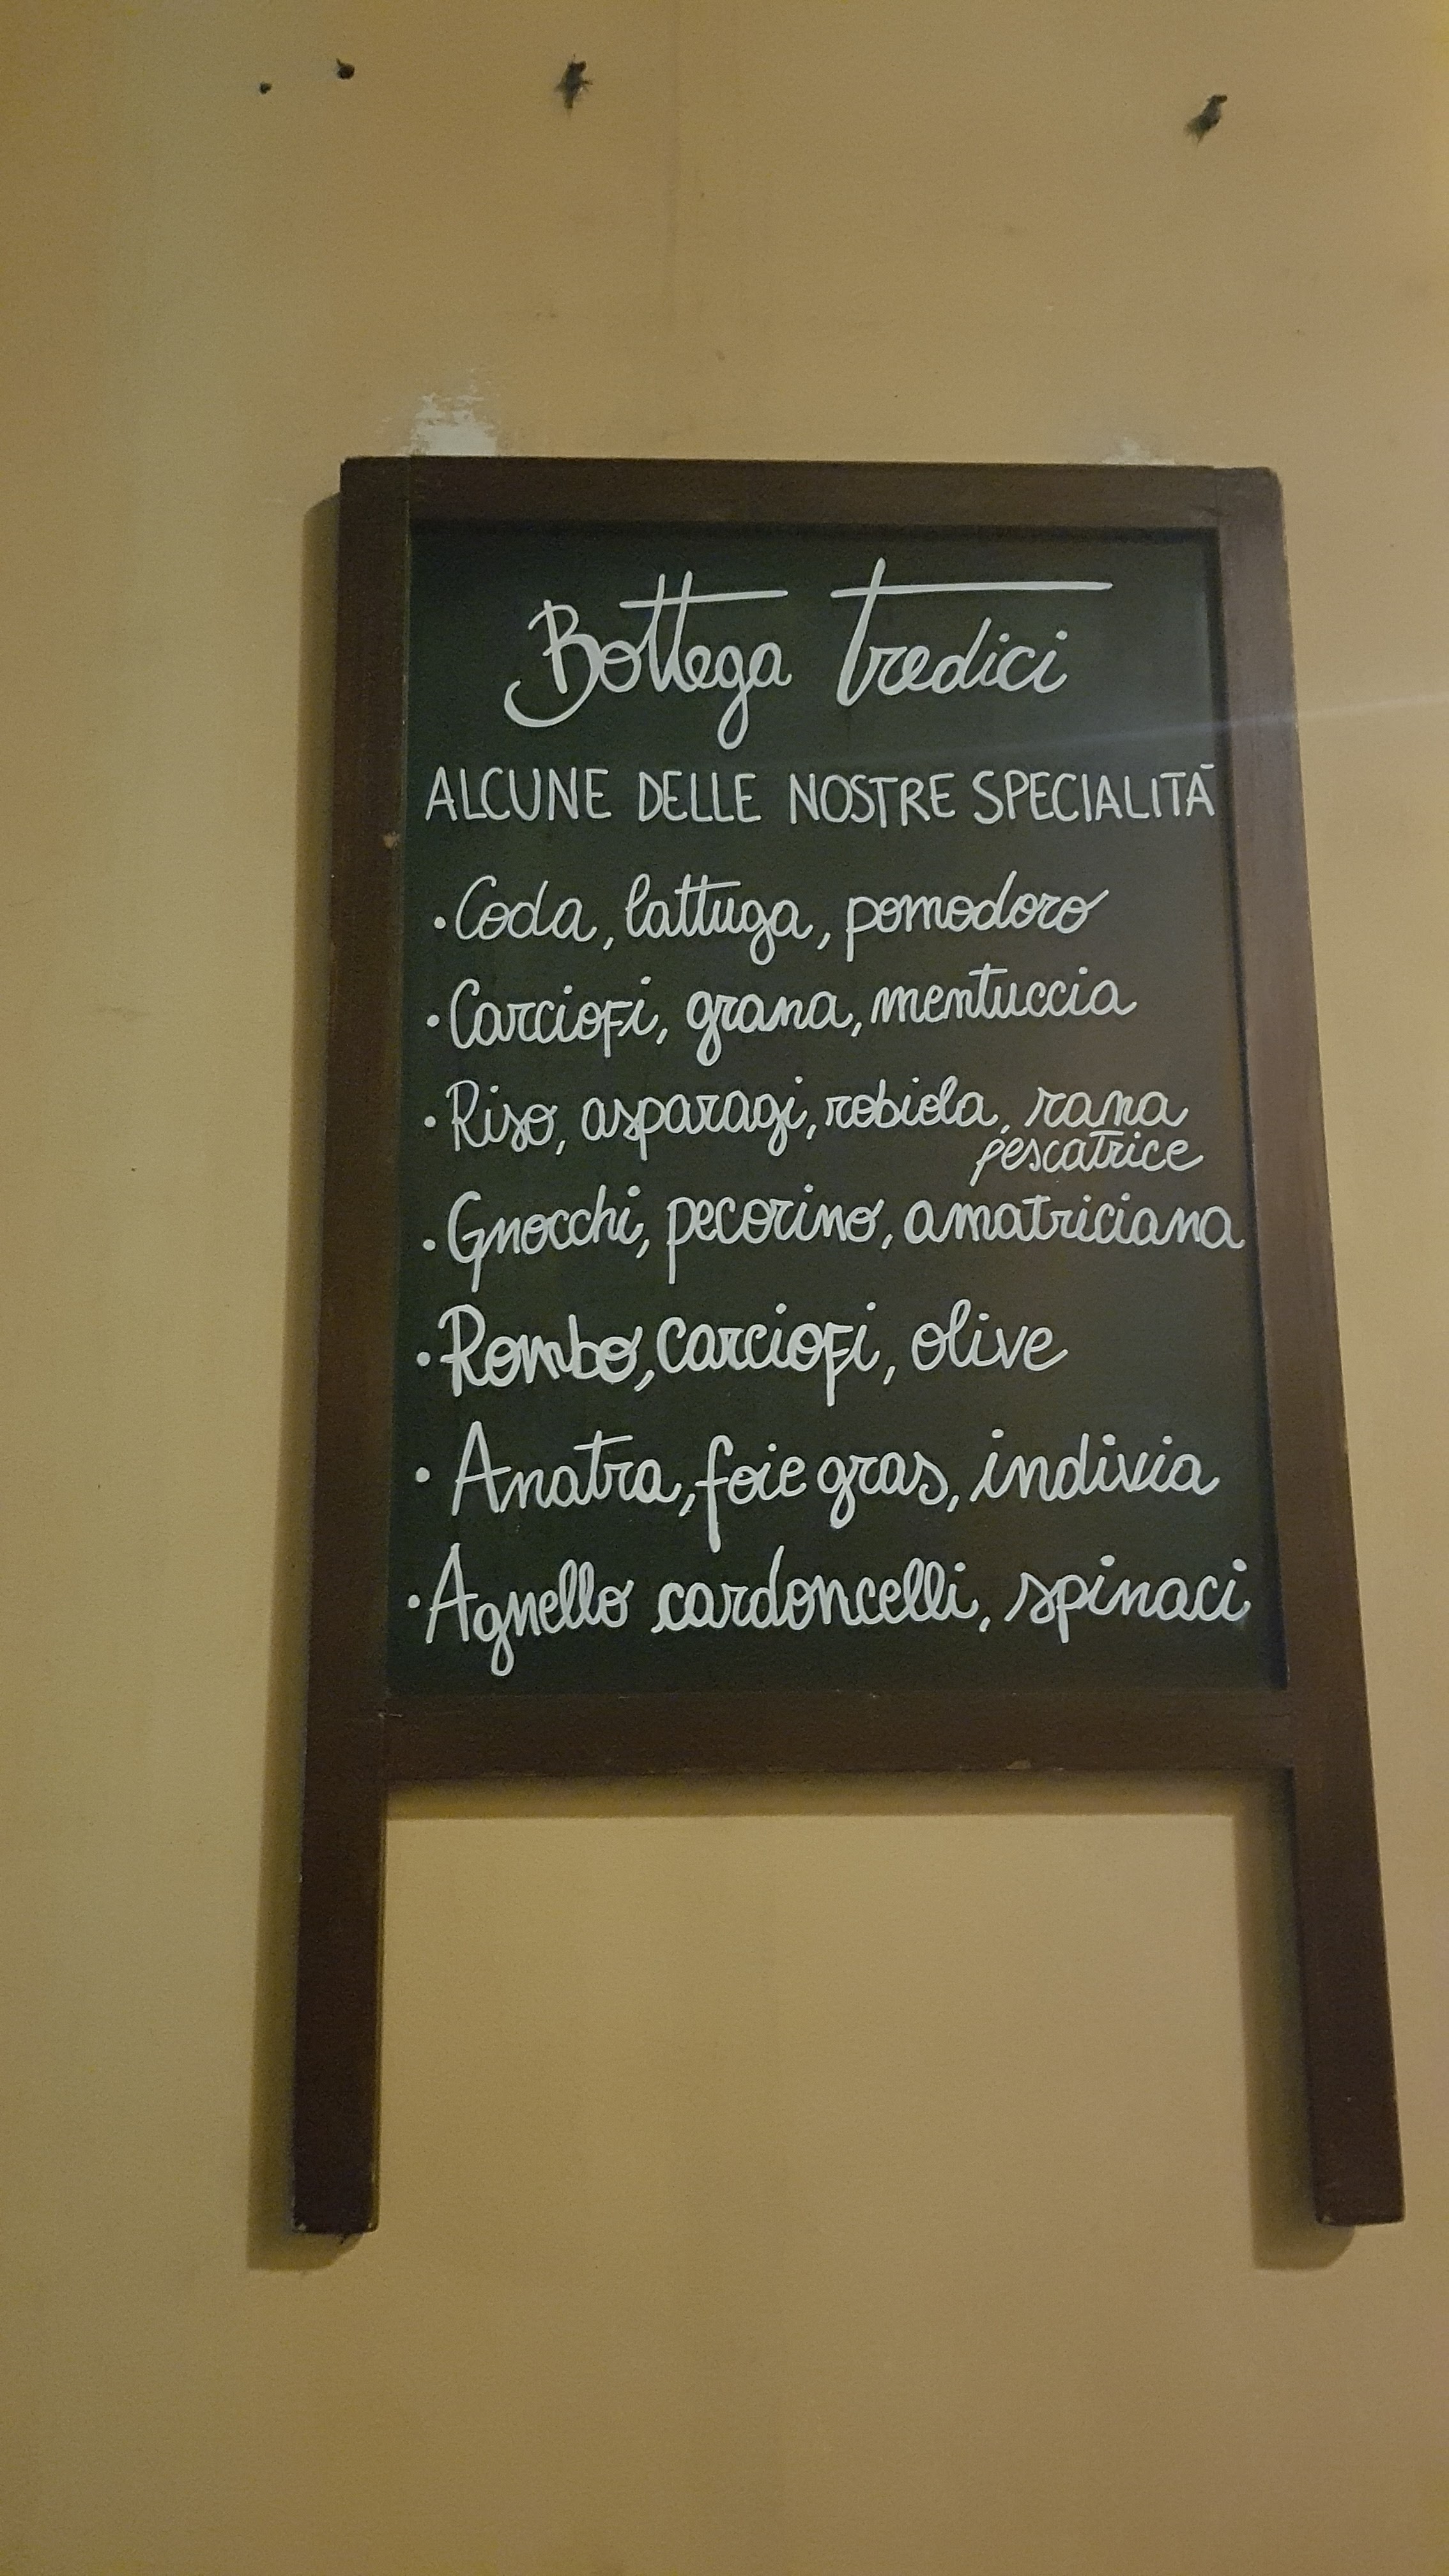 Bottega Tredici
ALCUNE DELLE NOSTRE SPECIALITÀ
• Coda, lattuga, pomodoro
• Carciofi, grana, mentuccia
• Riso, asparagi, robiola, rana
pescatrice
• Gnocchi, pecorino, amatriciana
• Rombo, carciofi, olive
• Anatra, foie gras, indivia
• Agnello cardoncelli, spinaci